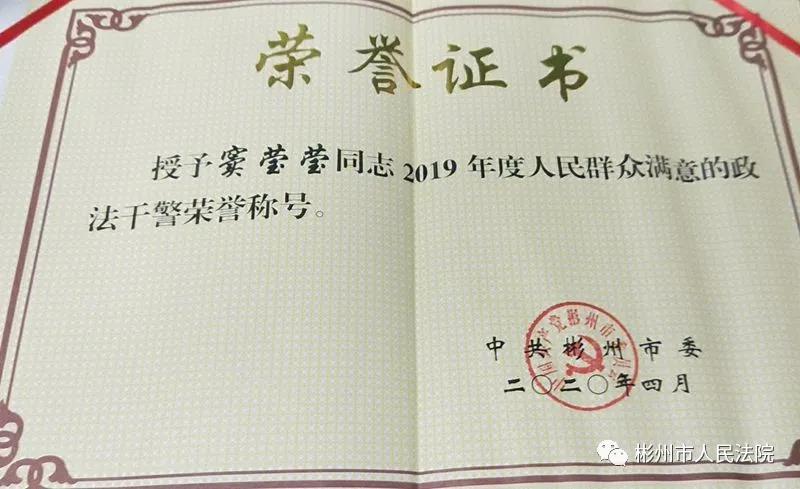 荣誉证书
授予窦莹莹同志2019年度人民群众满意的政
法干警荣誉称号。
中共彬州市委
二〇二〇年四月
中国共产党彬州市委员会
彬州市人民法院